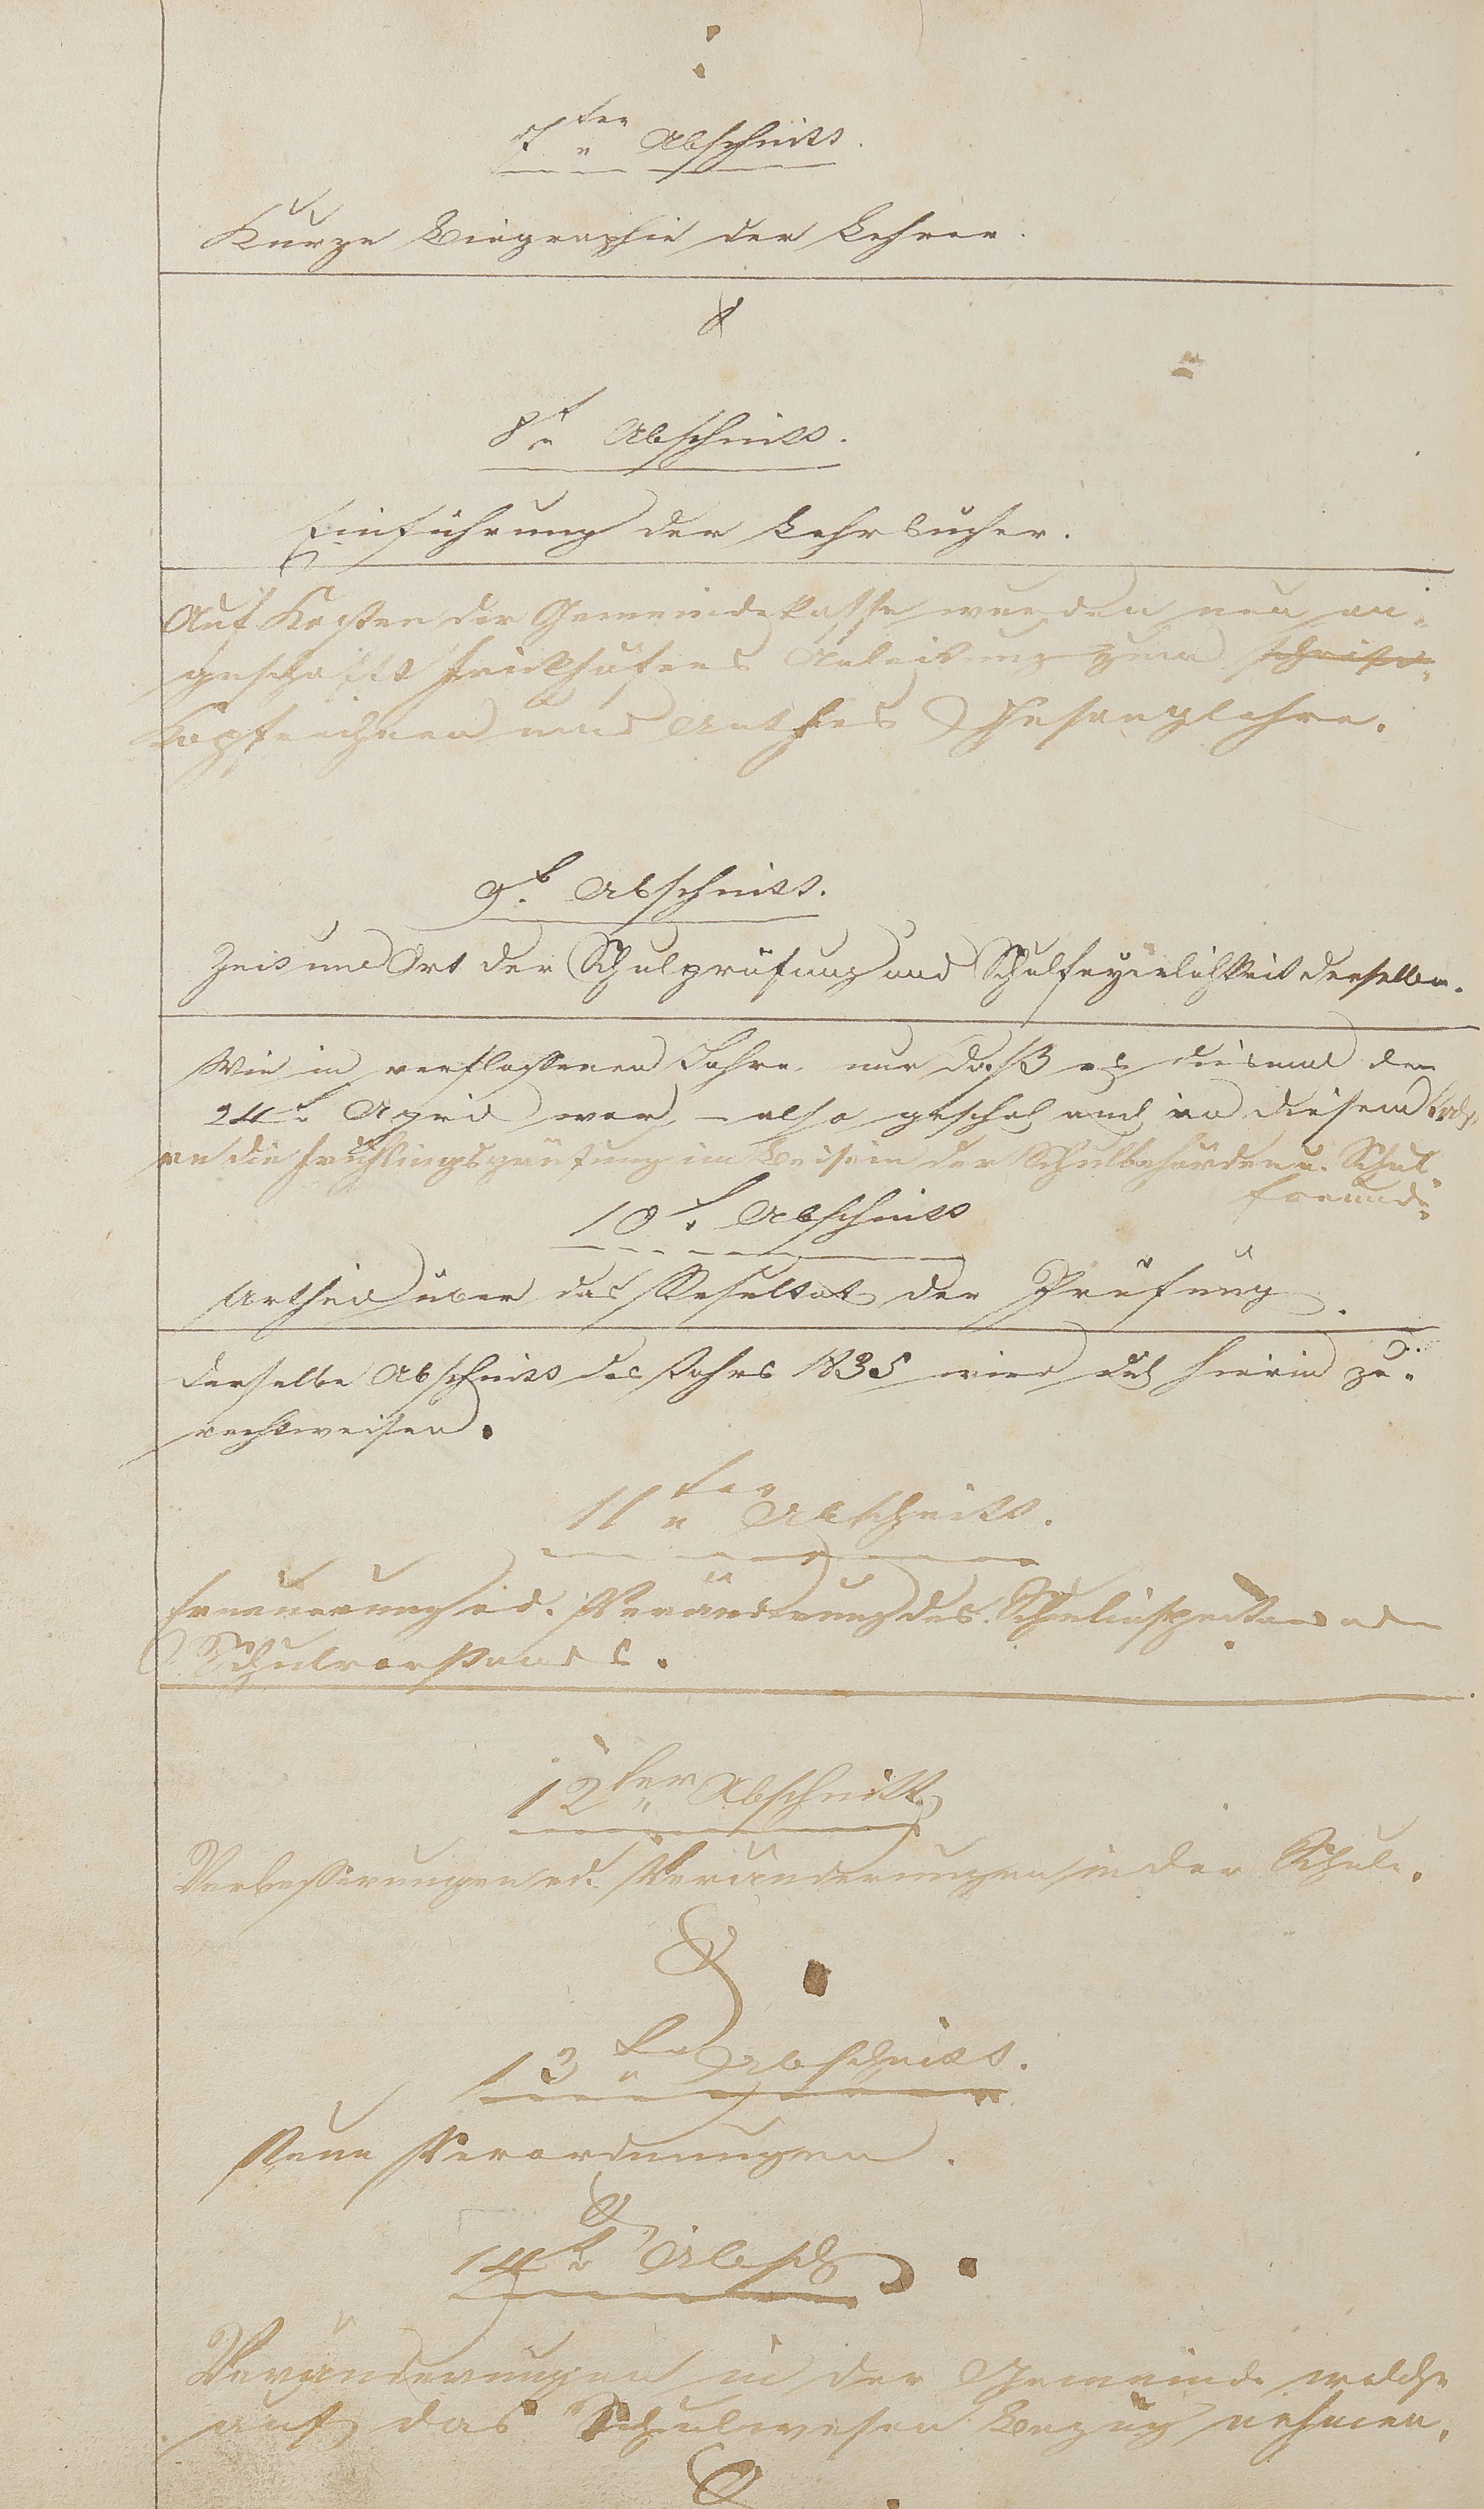 7ter Abschnitt.
Kurze Biographie der Lehrer.
8t Abschnitt.
Einführung der Lehrbücher.
Auf Kosten der Gemeindekasse wurden neu an-
geschafft Frickhöfers Anleitung zum
Kopfrechnen und Anthes Gesanglehre.
9t. Abschnitt.
Zeit und Ort der Schulprüfung und Schulfeyerlichkeit derselben.
Wie im verflossenen Jahre, nur daß es diesmal den
24t April war, – also geschah auch in diesem
die Frühlingsprüfung im Beisein der Schulbehörden u. Schul-
freunde.
10t. Abschnitt
Urtheil über das Resultat der Prüfung.
Derselbe Abschnitt des Jahrs 1835 wird auch hierin zu-
rechtweisen.
11ter Abschnitt.
Erneuerung od. Veränderung des Schulinspectors oder
Schulvorstands.
12ter Abschnitt.
Verbesserungen od. Veränderungen in der Schule.
13ter Abschnitt.
Neue Verordnungen.
14t. Absch
Veränderungen in der Gemeinde welche
auf das Schulwesen Bezug nehmen.